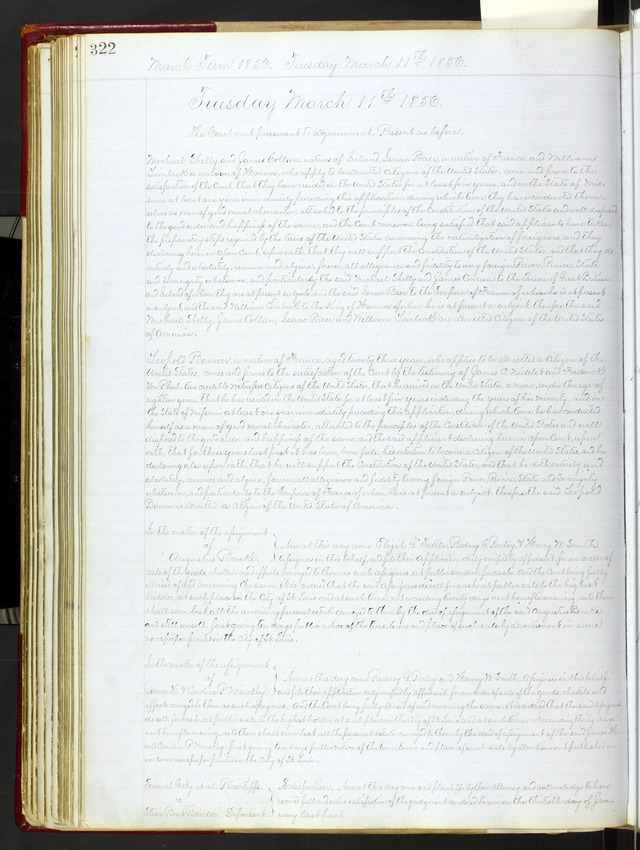 322
March Term 1856. Tuesday March 11th 1856.
Tuesday March 11th 1856.
The Court met pursuant to adjournment. Present as before.
Michael Shelly and James Collans natives of Ireland, Isaac Baer a native of France, and William
a native of Hanover, who apply to be admitted Citizens of the United States, come and prove to the
satisfaction of the Court that they have resided in the United States for at least five years, and in the State of Mis-
souri at least one year, immediately preceding this application, during which time they have conducted them-
selves as men of good moral character, attached to the principles of the Constitution of the United States and well disposed
to the good order and happiness of the same, and the Court moreover being satisfied that said applicants have taken
the preparatory steps required by the laws of the United States concerning the naturalization of foreigners, and they
declaring here, in open Court, upon oath, that they will support the Constitution of the United States, and that they do
entirely and absolutely renounce and abjure, forever, all allegiance and fidelity to every foreign Power, Prince, State
and Sovereignty whatsoever, and particularly the said Michael Shelly and James Collans to the Queen of Great Britain
and Ireland of whom they are at present subjects, and the said Isaac Baer to the Emperor of France, of whom he is at present
a subject, and the said William to the King of Hanover of whom he is at present a subject, therefore the said
Michael Shelly, James Collans, Isaac Baer and William are admitted Citizens of the United States
of America.
Leopold a native of France, aged twenty three years, who applies to be admitted a Citizen of the
United States, comes and proves to the satisfaction of the Court by the testimony of James C. and Frederick
Wm two credible witnesses Citizens of the United States, that he arrived in the United States, a minor, under the age of
eighteen years, that he has resided in the United States for at least five years including the years of his minority, and in
the State of Missouri at least one year immediately preceding this application, during which time he has conducted
himself as a man of good moral character, attached to the principles of the Constitution of the United States and well
disposed to the good order and happiness of the same, and the said applicant declaring here in open Court, upon
oath, that for three years last past it has been, bona fide, his intention to become a citizen of the United States, and he
declaring also upon oath, that he will support the Constitution of the United States, and that he doth entirely and
absolutely renounce and abjure, forever, all allegiance and fidelity to every foreign Power, Prince, State and Sovereignty
whatsoever, and particularly to the Emperor of France of whom he is at present a subject, therefore the said Leopold
is admitted a Citizen of the United States of America.
In the matter of the assignment
of
Augustus
Now at this day come Elijah G. Tuttle, Rodney G. and Henry W. Smith
Assignees in this behalf, and file their Application duly verified by affidavit, for an order of
sale of the goods, chattels and effects assigned to them as such assignees, as heretofore and the Court being fully
advised of and concerning the same. It is ordered that the said assignees sell for cash at public sale to the highest
bidder, at such place in the City of St. Louis and at such time, not exceeding twenty days next hereafter ensuing, as to them
shall seem best, all the remaining personal estate assigned to them by the deed of assignment of the said Augustus
and still unsold, first giving ten days public notice of the time, terms and place of such sale by advertisement in some
newspaper printed in the City of St. Louis.
In the matter of the assignment
of
James H. &
Now at this day come Rodney G. and Henry W. Smith, Assignees in this behalf
and file their application duly verified by affidavit, for an order of sale of the goods, chattels and
effects assigned to them as such assignees. And the Court being fully advised of and concerning the same. It is ordered that the said assignees
do sell for cash, at public sale, to the highest bidder, at such place in the City of St. Louis and at such time, not exceeding thirty days
next hereafter ensuing, as to them shall seem best, all the personal estate assigned to them by the deed of assignment of the said James H.
and first giving ten days public notice of the time, terms and place of such sale by advertisement published in
some newspaper printed in the City of St. Louis.
Samuel Gaty et al. Plaintiffs
vs
Steam Boat Defendant
Satisfaction. Now at this day come said plaintiffs by their attorney and acknowledge to have
received full and entire satisfaction of the judgment rendered herein on the thirtieth day of Jan-
uary last past.